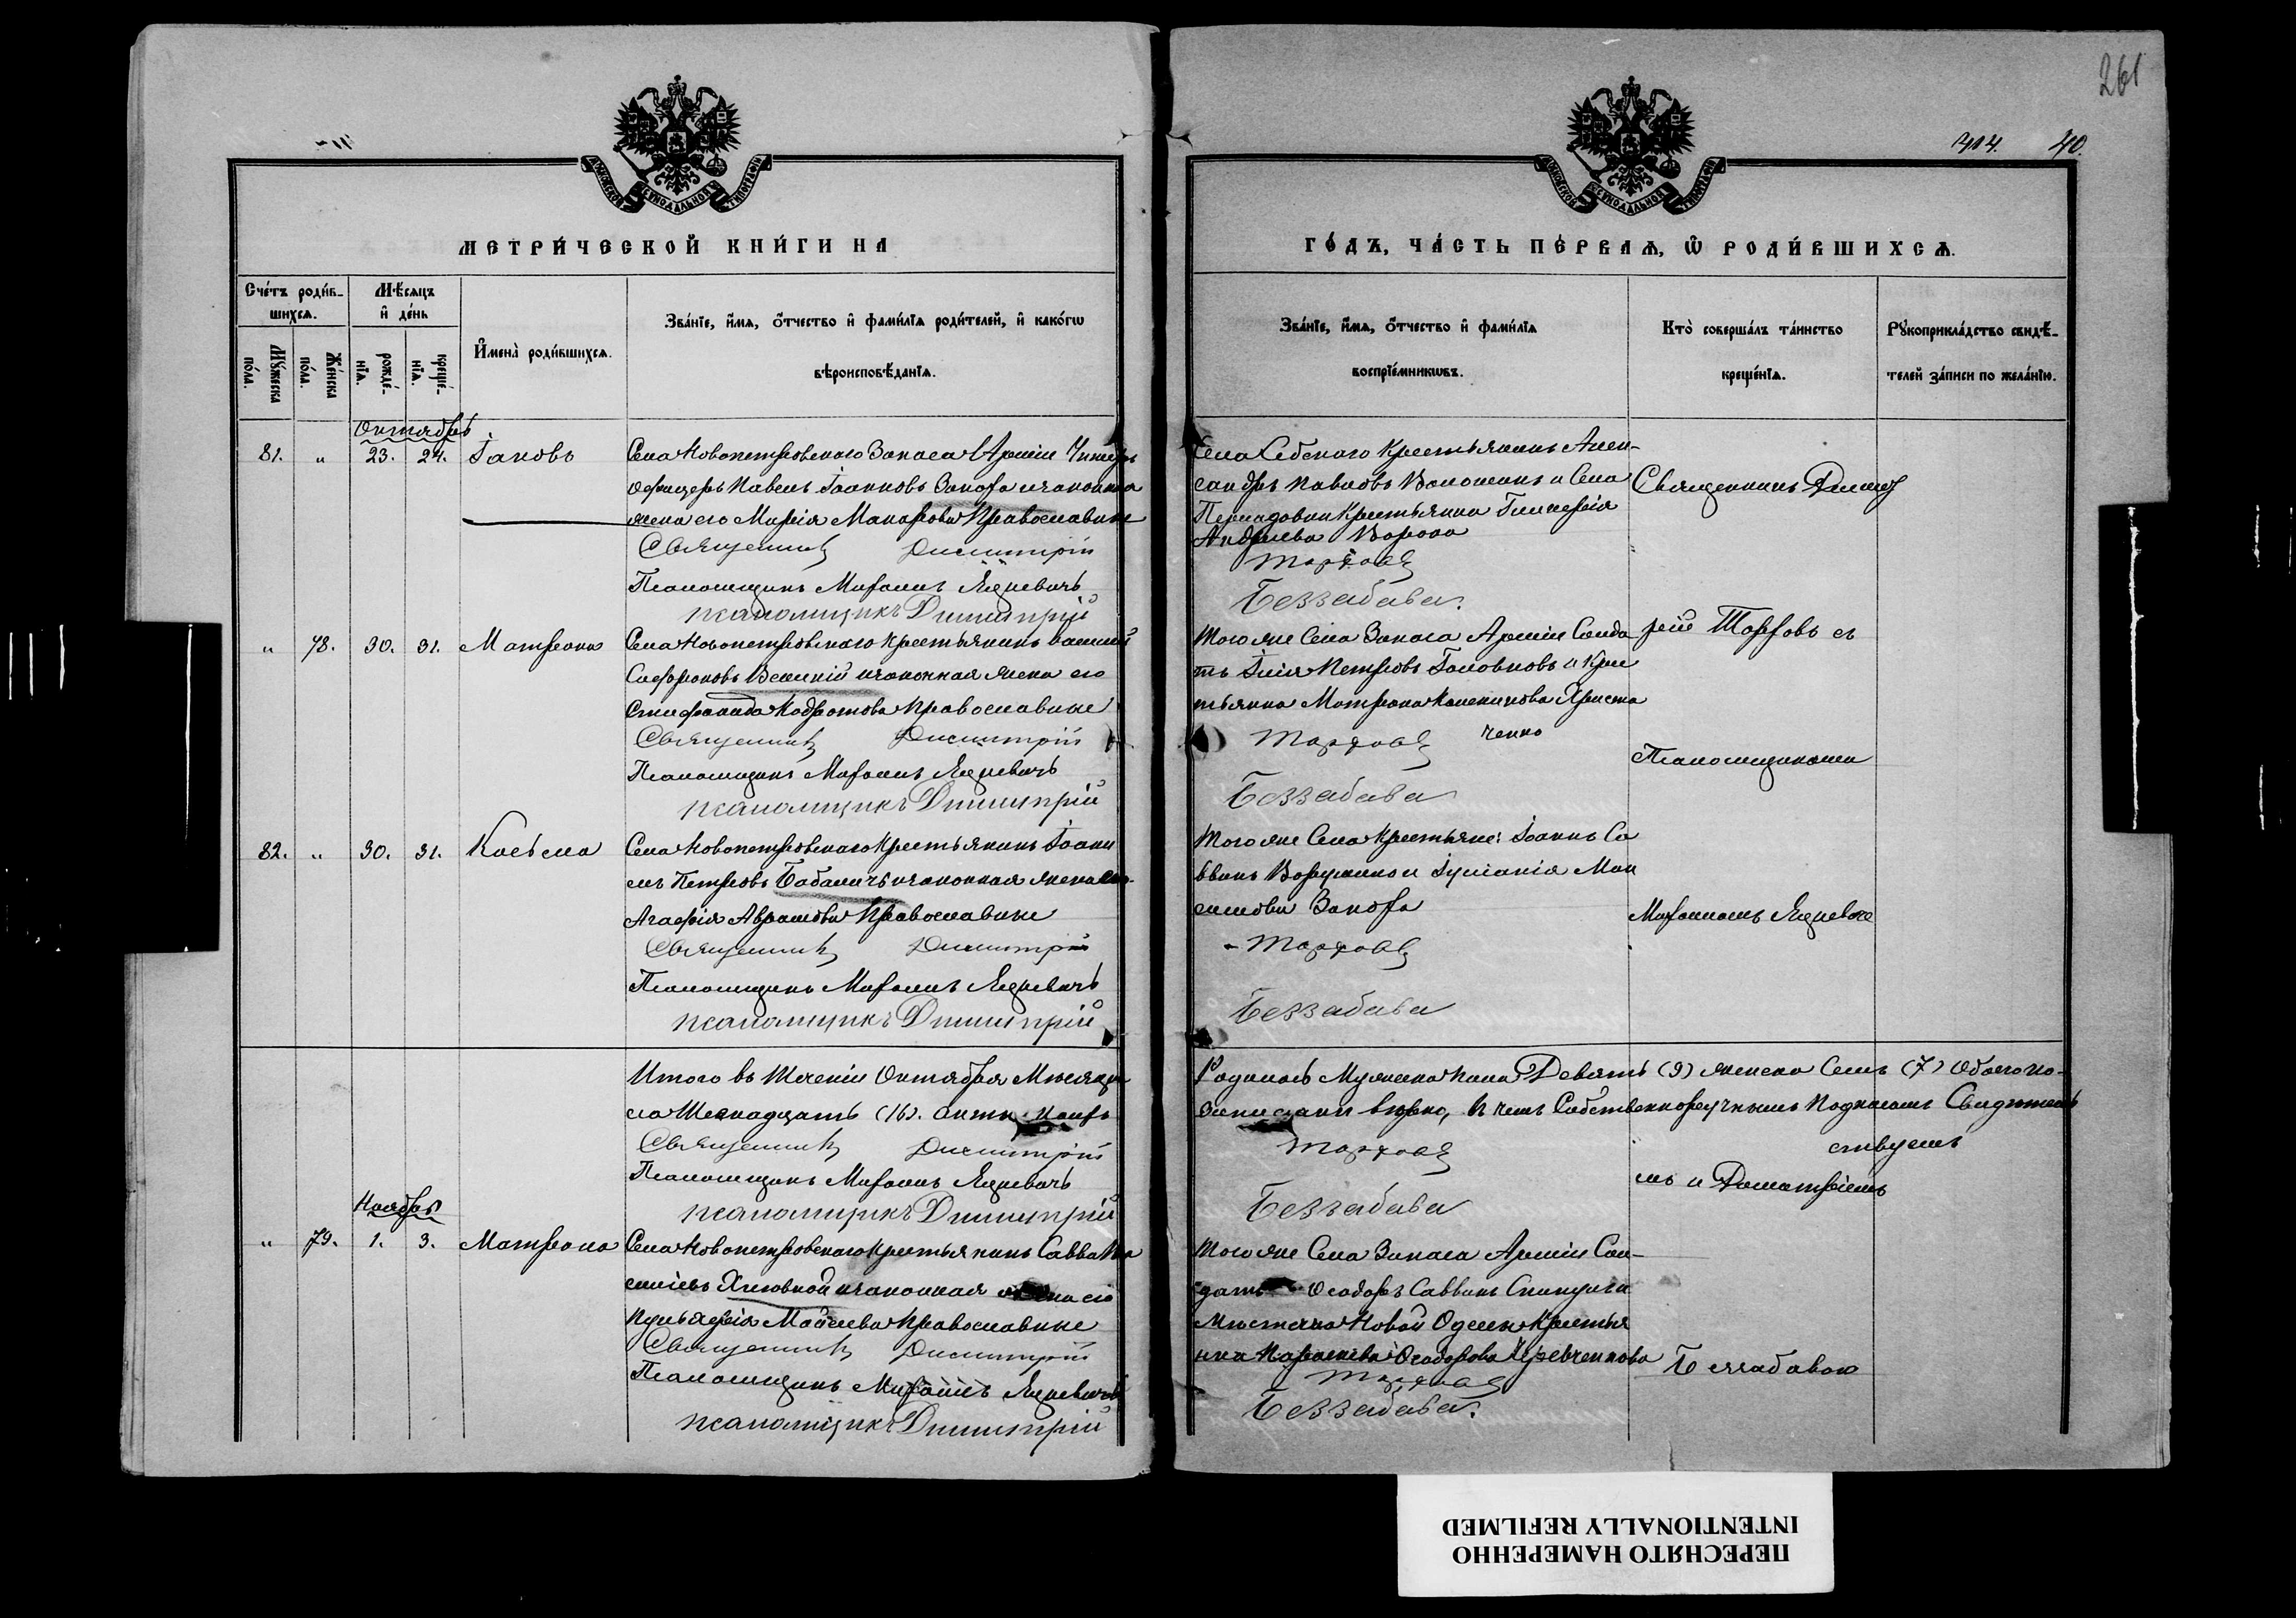 261
414. 40.
МЕТРИ́ЧЕСКОЙ КНИ́ГИ НА
ГО́ДЪ, ЧА́СТЬ ПЕ́РВАѦ, Ѡ РОДИ́ВШИХСѦ.
Сче́тъ роди́в-
шихсѧ.
Мѣ́сѧцъ
и де́нь
Мꙋ́жеска по́ла.
Же́нска по́ла.
рожде́-
нїѧ.
креще́-
нїѧ.
И҆мена̀ роди́вшихсѧ.
Зва́нїе, и҆́мѧ, ѻ҆́тчество и҆ фами́лїѧ роди́телей, и҆ како́гѡ
вѣроисповѣ́данїѧ.
Зва́нїе, и҆́мѧ, ѻ҆́тчество и҆ фами́лїѧ
воспрїе́мникѡвъ.
Кто̀ соверша́лъ та́инство
креще́нїѧ.
Рꙋкоприкла́дство свидѣ́-
телей за́писи по жела́нїю.
Октябрь
81. " 23. 24. Іаковъ
Села Новопетровскаго Запаса Арміи Унтеръ
офицеръ Павелъ Іоанновъ Закора и законная
жена его Марія Макарова Православные
Священникъ Димитрій
Псаломщикъ Михаилъ Яцкевичъ
псаломщикъ Димитрій
Села Себскаго Крестьянинъ Алек-
сандръ Павловъ Волошинъ и Села
Крестьянка Гликерія
Андреева Ворона
Торховъ
Беззабава.
Священникъ Димит
" 78. 30. 31. Матрона
Села Новопетровскаго Крестьянинъ Василій
Софроновъ Великій и законная жена его
Стефанида Кодратова Православные
Священникъ Димитрій
Псаломщикъ Михаилъ Яцкевичъ
псаломщикъ Димитрій
Того же Села Запаса Арміи Солда
тъ Илія Петровъ Головковъ и Крес
тьянка Матрона Каленикова Христи
ченко
Торховъ
Беззабава
рій Торховъ съ
Псаломщиками
82. " 30. 31. Косьма
Села Новопетровскаго Крестьянинъ Іоаннъ
Петровъ Бабаличъ и законная жена его
Агафія Аврамова Православные
Священникъ Димитрій
Псаломщикъ Михаилъ Яцкевичъ
псаломщикъ Димитрій
Того же Села Крестьяне: Іоаннъ Са
ввинъ и Іуліанія Мак
симова Закора
Торховъ
Беззабава
Михаиломъ Яцкевиче
Итого въ теченіи Октября Мѣсяца
ла Шестнадцать (16).
Священникъ Димитрій
Псаломщикъ Михаилъ Яцкевичъ
псаломщикъ Димитрій
Родилось Мужеска пола Девять (9) женска Семь (7) Обоего по-
записаны вѣрно, въ чемъ Собственноручнымъ Подписомъ Свидѣтель
ствуемъ
Торховъ
Беззабава
мъ и Димитріемъ
Ноябрь
" 79. 1. 3. Матрона
Села Новопетровскаго Крестьянинъ Савва
и законная жена его
Пульхерія Моисеева Православные
Священникъ Димитрій
Псаломщикъ Михаилъ Яцкевичъ
псаломщикъ Димитрій
Того же Села Запаса Арміи Сол-
датъ Ѳеодоръ Саввинъ
Мѣстечка Новой Одессы Крестья
нка Параскева Ѳеодорова Червченкова
Торховъ
Беззабава.
Беззабавою
ПЕРЕСНЯТО НАМЕРЕННО
INTENTIONALLY REFILMED